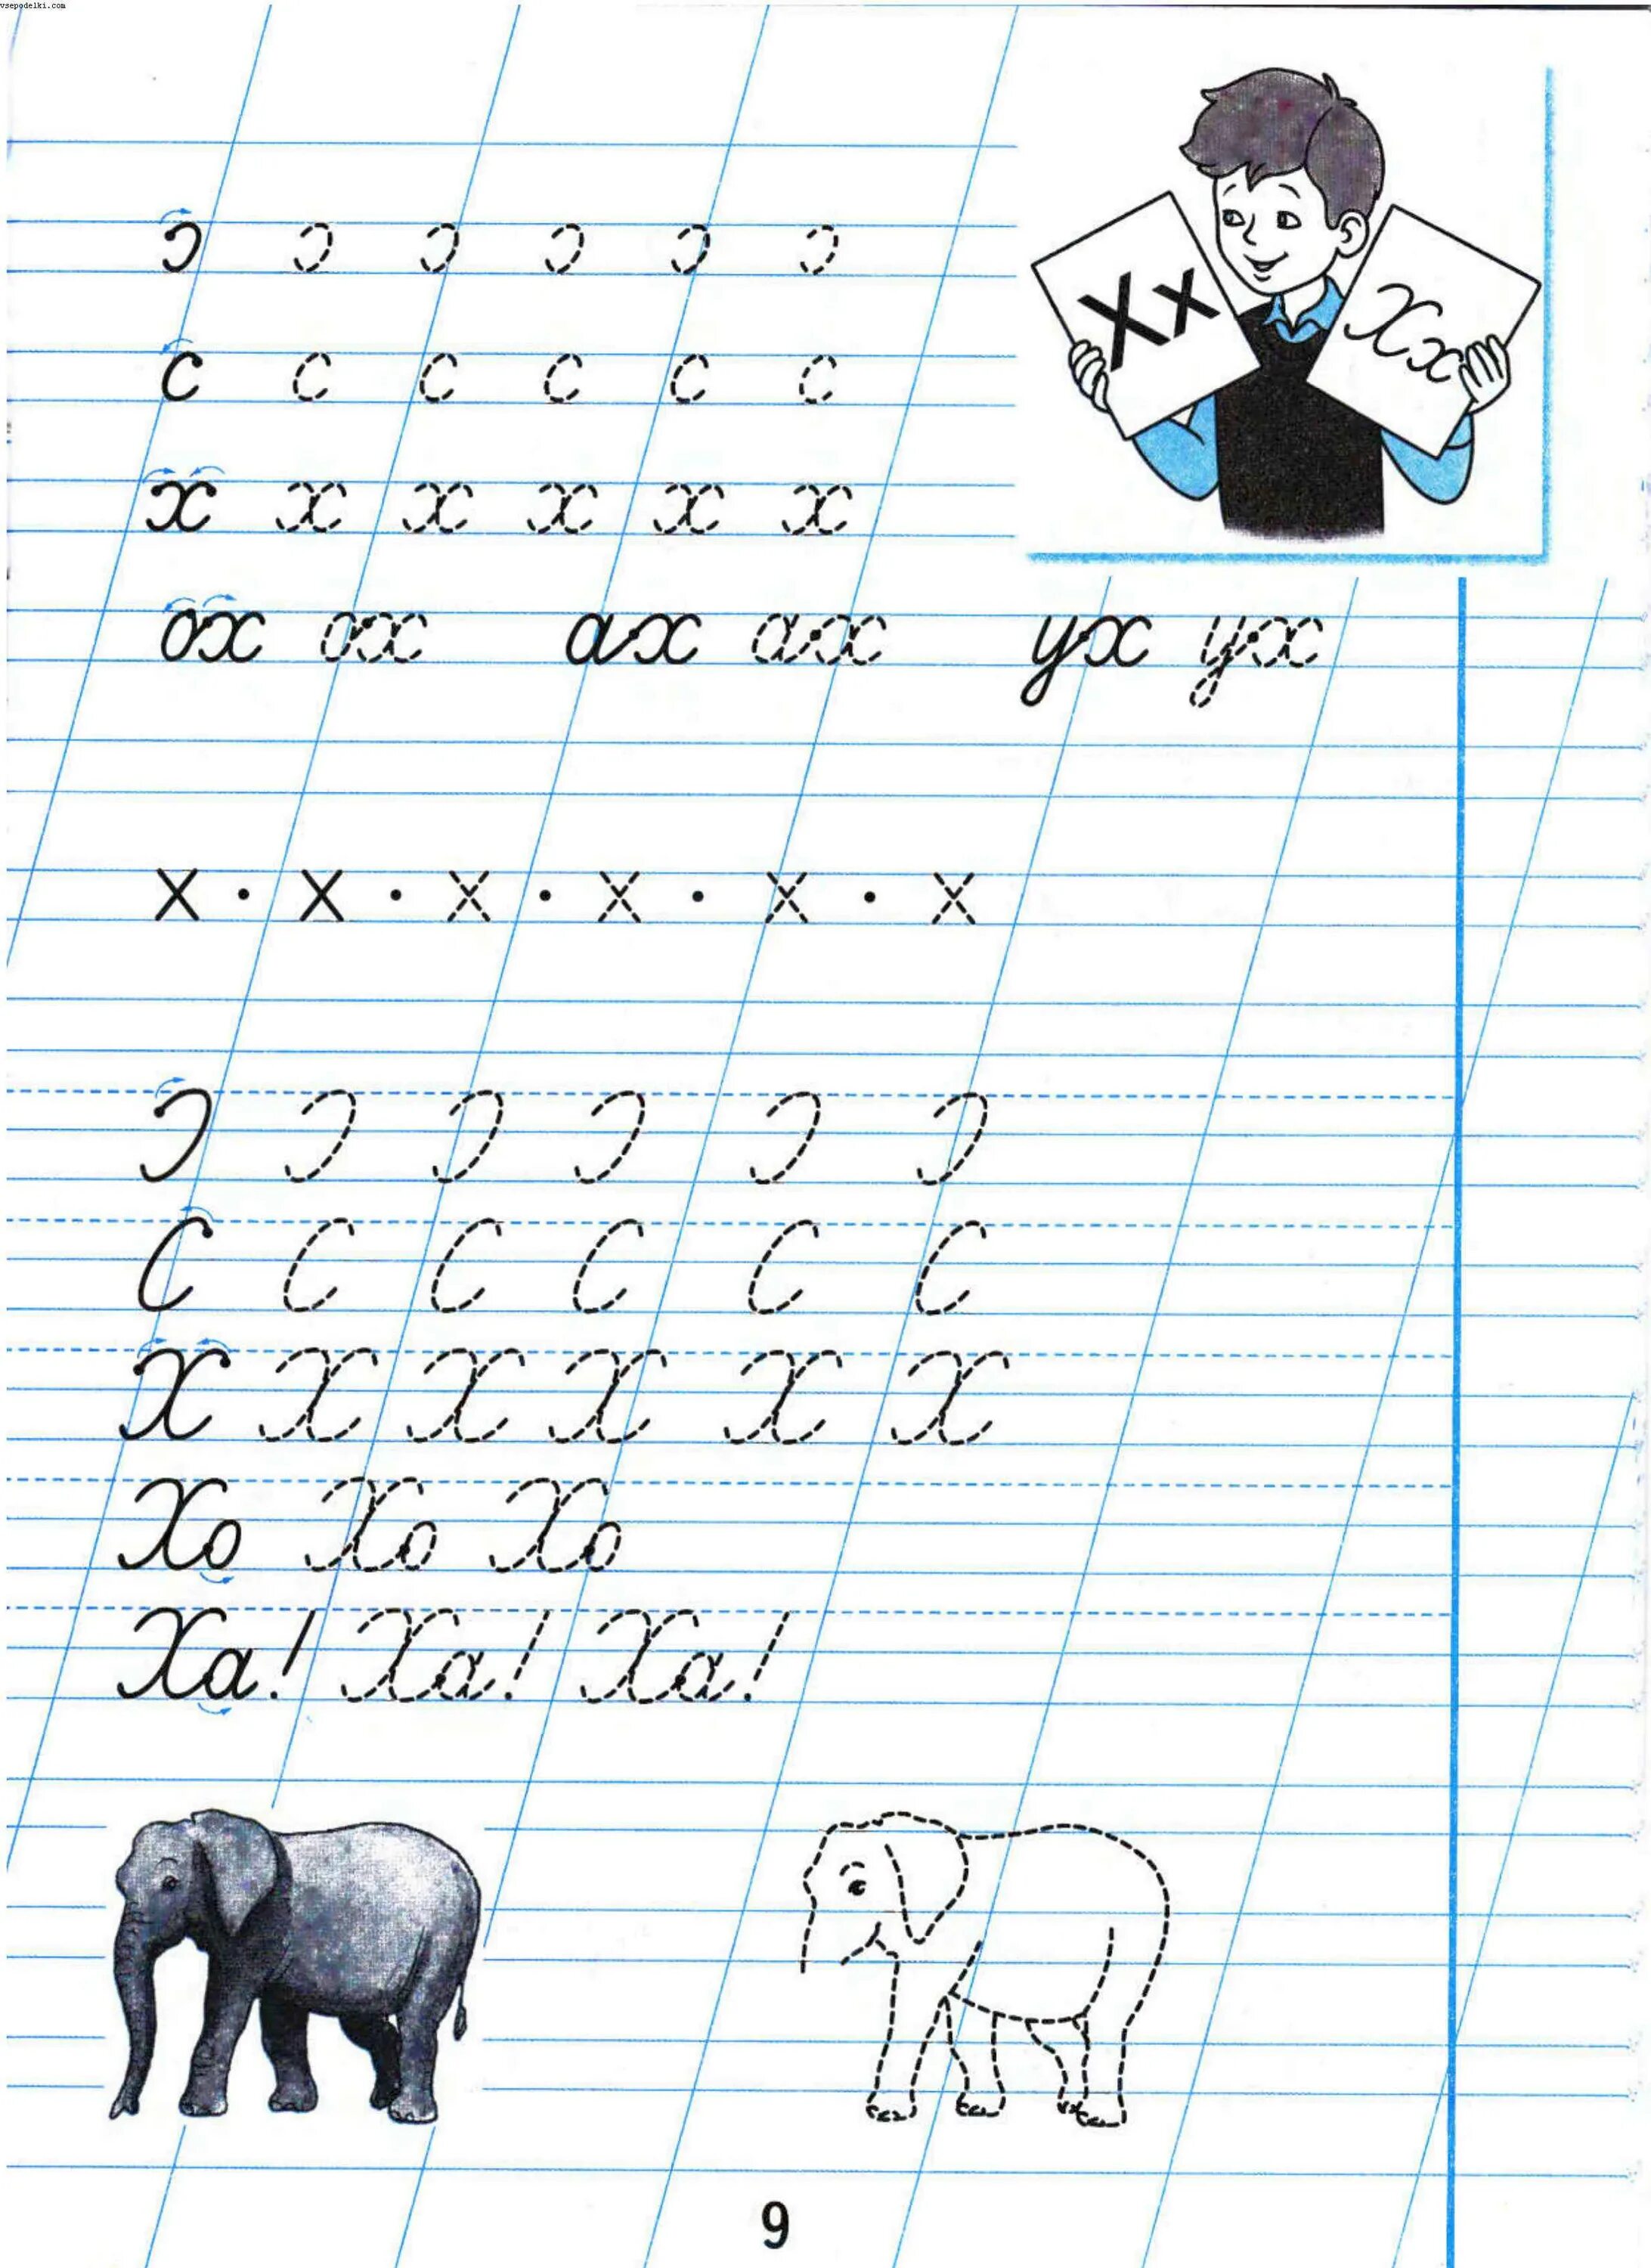 vsepodelki.com
Хх Хх
с с с с с с
х х х х х х
ох ох ах ах ух ух
х · х · х · х · х · х
С С С С С С
Х Х Х Х Х Х
Хо Хо Хо
Ха! Ха! Ха!
9